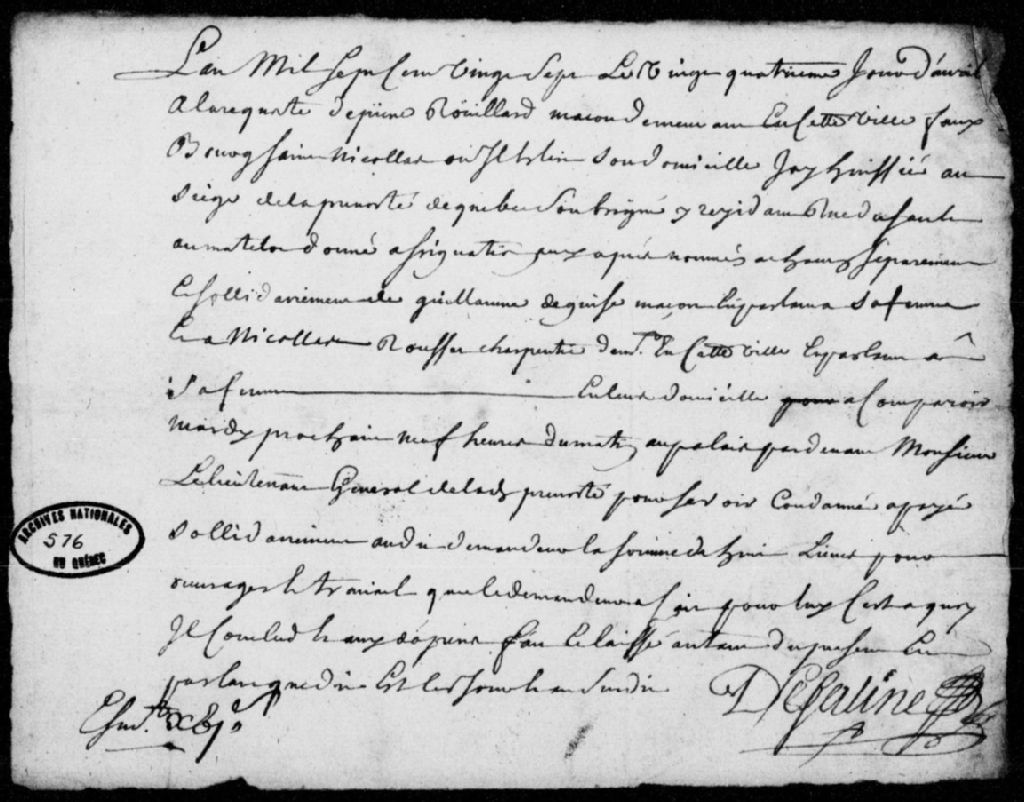 L'an Mil sept Cent Vingt Sept Le Vingt quatrieme Jour d'avril
A la requeste de pierre Roüillard macon demeurant En Cette Ville faux
Bourg saint Nicollas où Il Eslit son domicille Jay huissier au
siège de la prevosté de quebec Soubsigné y residant Rue du sault
au matelot donné assignation aux apres nommés a Chacun séparement
Et sollidairement a guillaume deguise maçon En parlant a sa femme
Et a Nicollas Rousset charpentier demt. En Cette Ville En parlant a
sa femme En leur domicille pour a Comparoir
mardy prochain neuf heures du matin au palais pardevant Monsieur
Le lieutenant General de lad. prevosté pour se voir Condamné a payé
sollidairement audit demandeur la somme de huit Livres pour
ouvrages Et travail que le demandeur a fait pour Eux C'est a quoy
Il Conclud Et aux dépens fait Et laissé autant du present En
parlant que dit Est Les Jour Et an susdit
DeSaline
ARCHIVES NATIONALES
576
DU QUÉBEC